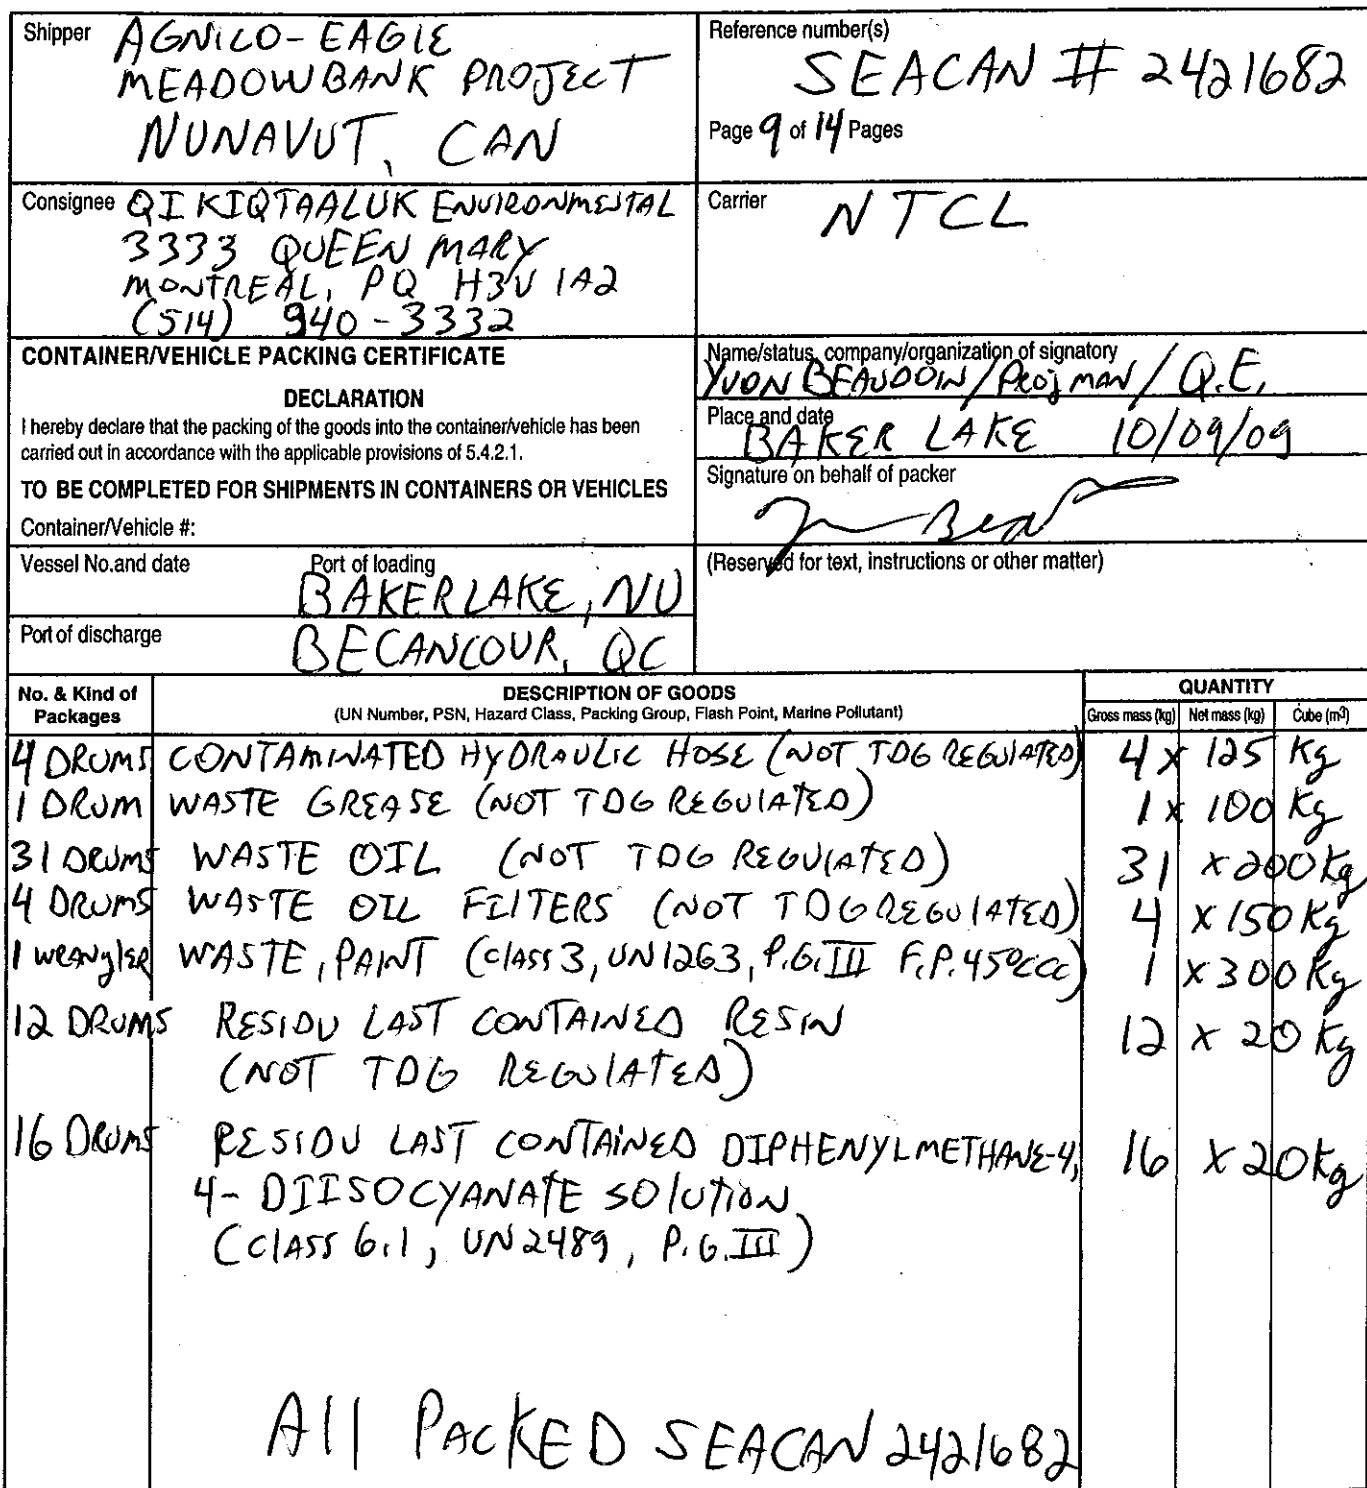 Shipper AGNICO-EAGLE
MEADOWBANK PROJECT
NUNAVUT, CAN
Reference number(s)
SEACAN # 2421682
Page 9 of 14 Pages
Consignee QIKIQTAALUK ENVIRONMENTAL
3333 QUEEN MARY
MONTREAL, PQ H3V 1A2
(514) 940-3332
Carrier NTCL
CONTAINER/VEHICLE PACKING CERTIFICATE
DECLARATION
I hereby declare that the packing of the goods into the container/vehicle has been
carried out in accordance with the applicable provisions of 5.4.2.1.
TO BE COMPLETED FOR SHIPMENTS IN CONTAINERS OR VEHICLES
Container/Vehicle #:
Name/status, company/organization of signatory
YVON BEAUDOIN / Proj MAN / Q.E.
Place and date
BAKER LAKE 10/09/09
Signature on behalf of packer
Vessel No.and date
Port of loading
BAKER LAKE, NU
(Reserved for text, instructions or other matter)
Port of discharge
BECANCOUR, QC
No. & Kind of Packages
DESCRIPTION OF GOODS
(UN Number, PSN, Hazard Class, Packing Group, Flash Point, Marine Pollutant)
QUANTITY
Gross mass (kg) Net mass (kg) Cube (m³)
4 DRUMS CONTAMINATED HYDRAULIC HOSE (NOT TDG REGULATED) 4 x 125 Kg
1 DRUM WASTE GREASE (NOT TDG REGULATED) 1 x 100 Kg
31 DRUMS WASTE OIL (NOT TDG REGULATED) 31 x 200 Kg
4 DRUMS WASTE OIL FILTERS (NOT TDG REGULATED) 4 x 150 Kg
1 WRANGLER WASTE, PAINT (CLASS 3, UN1263, P.G. III F.P. 45°CCC) 1 x 300 Kg
12 DRUMS RESIDU LAST CONTAINED RESIN 12 x 20 Kg
(NOT TDG REGULATED)
16 DRUMS RESIDU LAST CONTAINED DIPHENYLMETHANE-4, 16 x 20 kg
4- DIISOCYANATE SOLUTION
(CLASS 6.1, UN2489, P.G. III)
All PACKED SEACAN 2421682